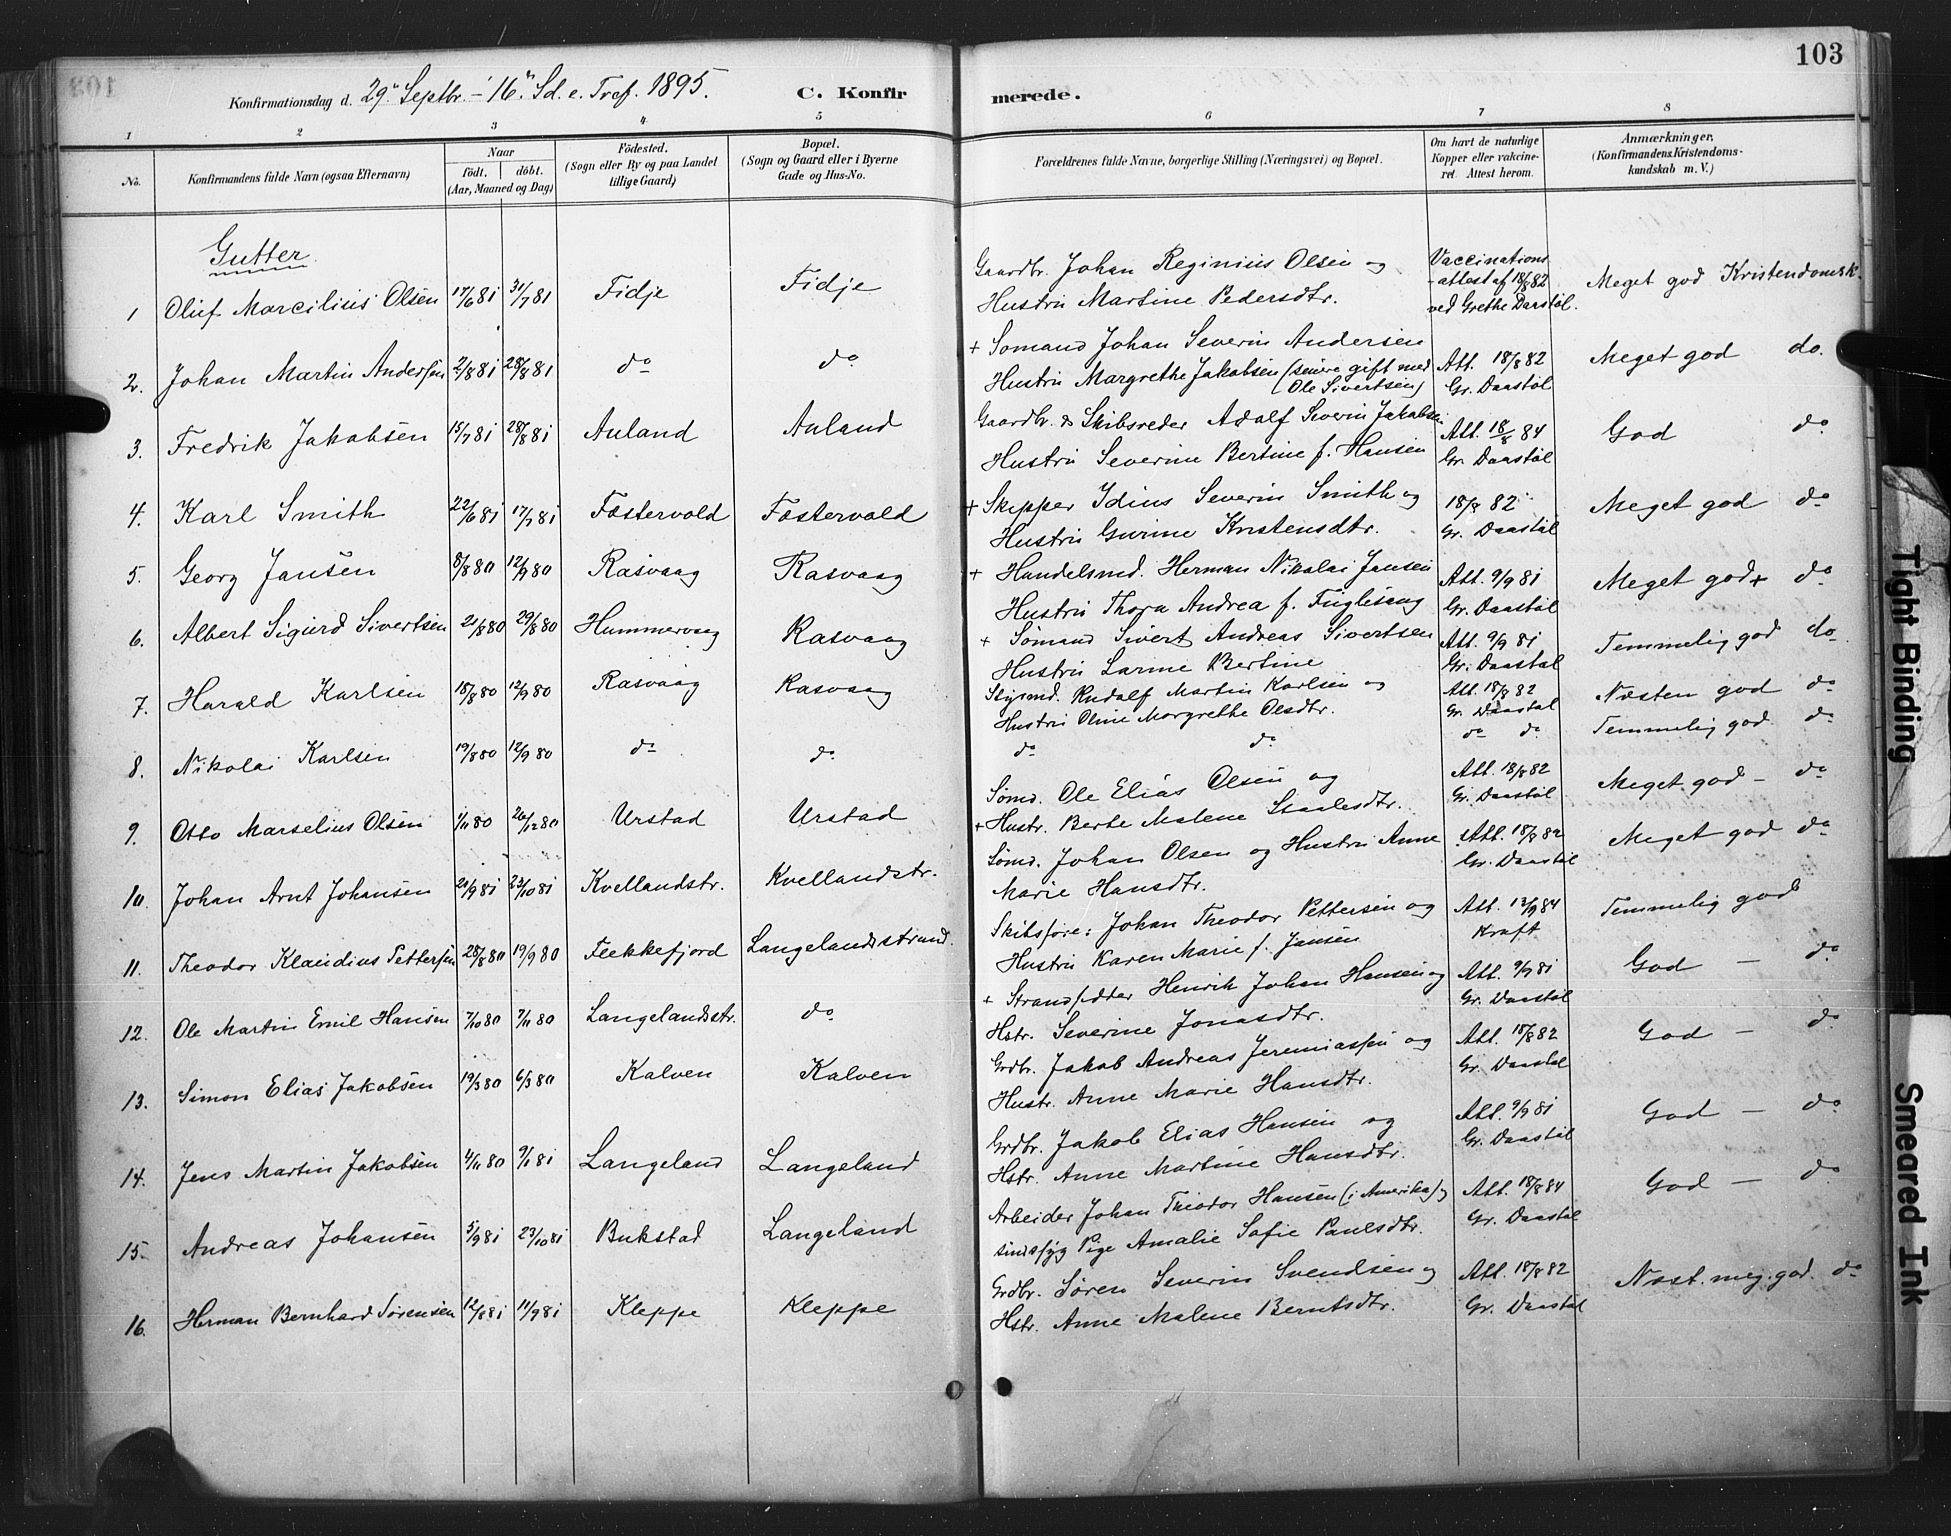 103
Konfirmationsdag d. 29de Septbr. - 16de Sd. e. Tref. 1895. C. Konfirmerede.
1 2 3 4 5 6 7 8
No. Konfirmandens fulde Navn (ogsaa Efternavn) Naar födt. döbt. (Aar, Maaned og Dag) Födested. (Sogn eller By og paa Landet tillige Gaard) Bopæl. (Sogn og Gaard eller i Byerne Gade og Hus-No. Forældrenes fulde Navne, borgerlige Stilling (Næringsvei) og Bopæl. Om havt de naturlige Kopper eller vakcineret. Attest herom. Anmærkninger. (Konfirmandens Kristendomskundskab m. V.)
Gutter
1 Oluf Marcilius Olsen 17/6 81 31/7 81 Fidje Fidje Gaardbr. Johan Reginius Olsen og
Hustru Martine Pedersdtr. Vaccinations-attest af 18/8 82 ved Grethe Daastøl. Meget god Kristendomsk.
2. Johan Martin Andersen 2/8 81 28/8 81 do do + Sømand Johan Severin Andersen
Hustru Margrethe Jakobsen (senere gift med Ole Sivertsen) Att. 18/8 82 Gr. Daastøl Meget god do.
3. Fredrik Jakobsen 15/7 81 28/8 81 Auland Auland Gaardbr. & Skibsreder Adolf Severin Jakobsen
Hustru Severine Bertine f. Hansen Att. 18/8 84 Gr. Daastøl God do
4. Karl Smith 22/6 81 17/7 81 Fostervold Fostervold + Skipper Idius Severin Smith og
Hustru Gurine Kristensdtr. 18/8 82 Gr. Daastøl Meget god do
5. Georg Jansen 8/8 80 12/9 80 Rasvaag Rasvaag + Handelsmd. Herman Nikolai Jansen
Hustru Thora Andrea f. Fuglesang Att. 9/9 81 Gr. Daastøl Meget god + do
6. Albert Sigurd Sivertsen 21/8 80 29/8 80 Hummervaag Rasvaag + Sømand Sivert Andreas Sivertsen
Hustru Larine Bertine Att. 9/9 81 Gr. Daastøl Temmelig god do
7. Harald Karlsen 18/8 80 12/9 80 Rasvaag Rasvaag Styrmd. Rudolf Martin Karlsen og
Hustru Oline Margrethe Olsdtr. Att. 18/8 82 Gr. Daastøl Næsten god do
8. Nikolai Karlsen 19/8 80 12/9 80 do do do do do do Temmelig god do
9. Otto Marselius Olsen 1/11 80 26/12 80 Urstad Urstad Sømd. Ole Elias Olsen og
+ Hustr. Berte Malene Staalesdtr. Att. 18/8 82 Gr. Daastøl Meget god - do
10. Johan Arnt Johansen 21/9 81 23/10 81 Kvellandstr. Kvellandstr. Sømd. Johan Olsen og Hustru Anne
Marie Hansdtr. Att. 18/8 82 Gr. Daastøl Meget god do
11. Theodor Klaudius Pettersen 28/8 80 19/9 80 Flekkefjord Langelandsstrand. Skibsføre: Johan Theodor Pettersen og
Hustru Karen Marie f. Jansen Att. 13/9 84 Kraft Temmelig god
12. Ole Martin Emil Hansen 7/10 80 7/11 80 Langelandsstr. do + Strandsidder Henrik Johan Hansen og
Hstr. Severine Jonasdtr. Att. 9/9 81 Gr. Daastøl God - do
13. Simon Elias Jakobsen 19/3 80 6/3 80 Kalven Kalven Grdbr. Jakob Andreas Jeremiassen og
Hustr. Anne Marie Hansdtr. Att. 18/8 82 Gr. Daastøl God - do
14. Jens Martin Jakobsen 4/11 80 9/1 81 Langeland Langeland Grdbr. Jakob Elias Hansen og
Hstr. Anne Martine Hansdtr. Att. 9/9 81 Gr. Daastøl God - do
15. Andreas Johansen 5/9 81 23/10 81 Bukstad Langeland Arbeider Johan Theodor Hansen (i Amerika) og
sindssyg Pige Amalie Sofie Paulsdtr. Att. 18/8 84 Gr. Daastøl God - do
16. Herman Bernhard Sørensen 12/8 81 11/9 81 Kleppe Kleppe Grdbr. Søren Severin Svendsen og
Hstr. Anne Malene Berntsdtr. Att. 18/8 82 Gr. Daastøl Næst. meg. god. do
Tight Binding
Smeared Ink